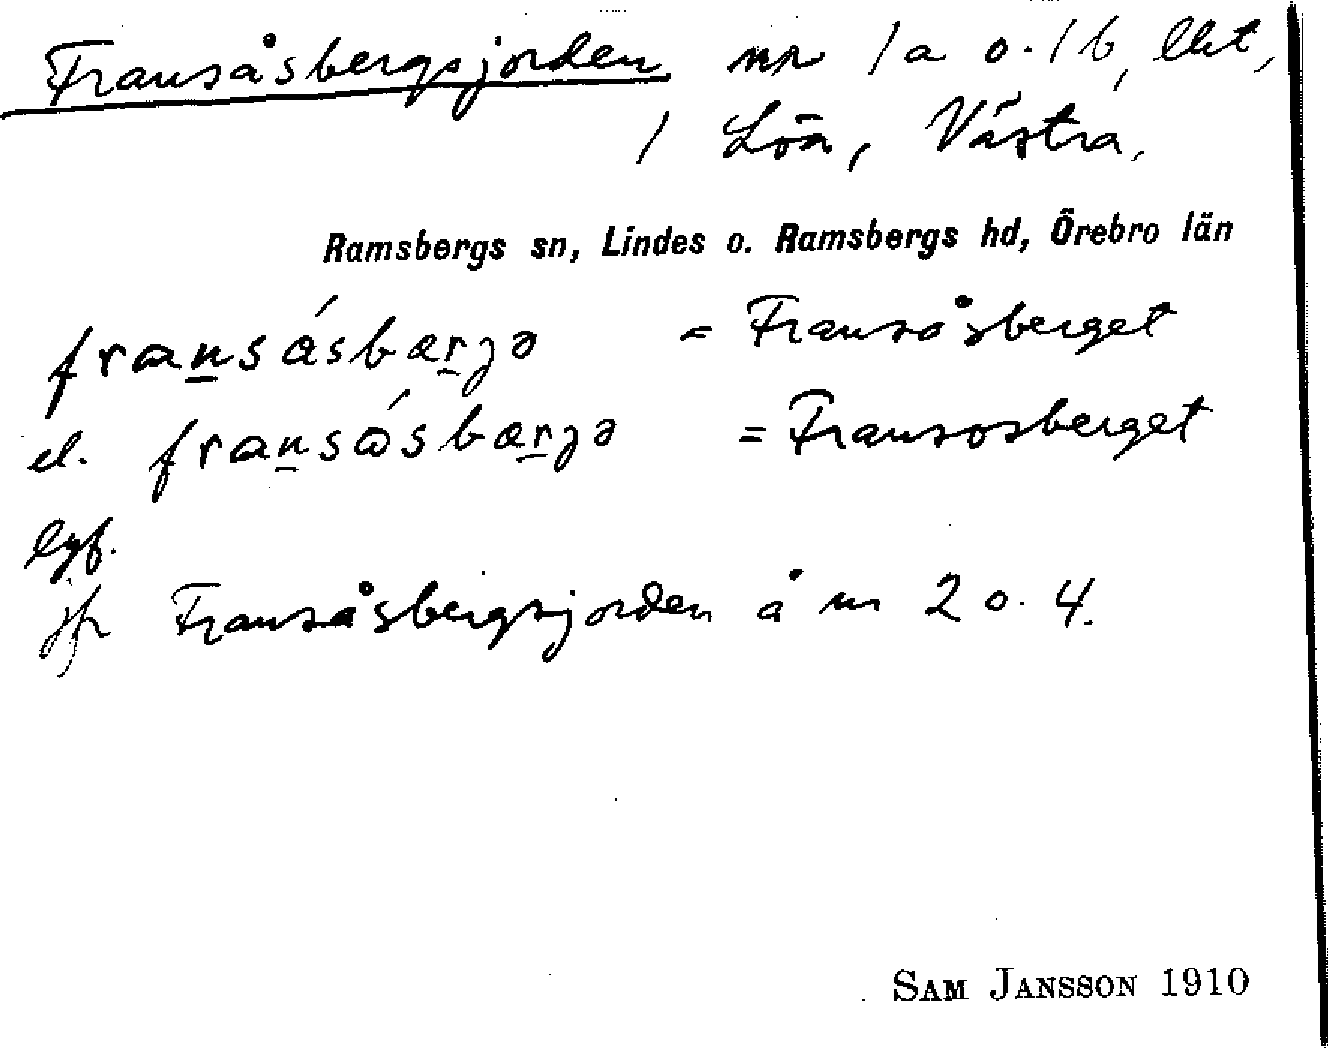 Fransåsbergsjorden nr 1a o. 1b, lht,
/ Löa, Västra,
Ramsbergs sn, Lindes o. Ramsbergs hd, Örebro län
fransásbærjə = Fransåsberget
el. fransósbærjə = Fransosberget
lgf.
jfr Fransåsbergsjorden å nr 2 o. 4.
SAM JANSSON 1910